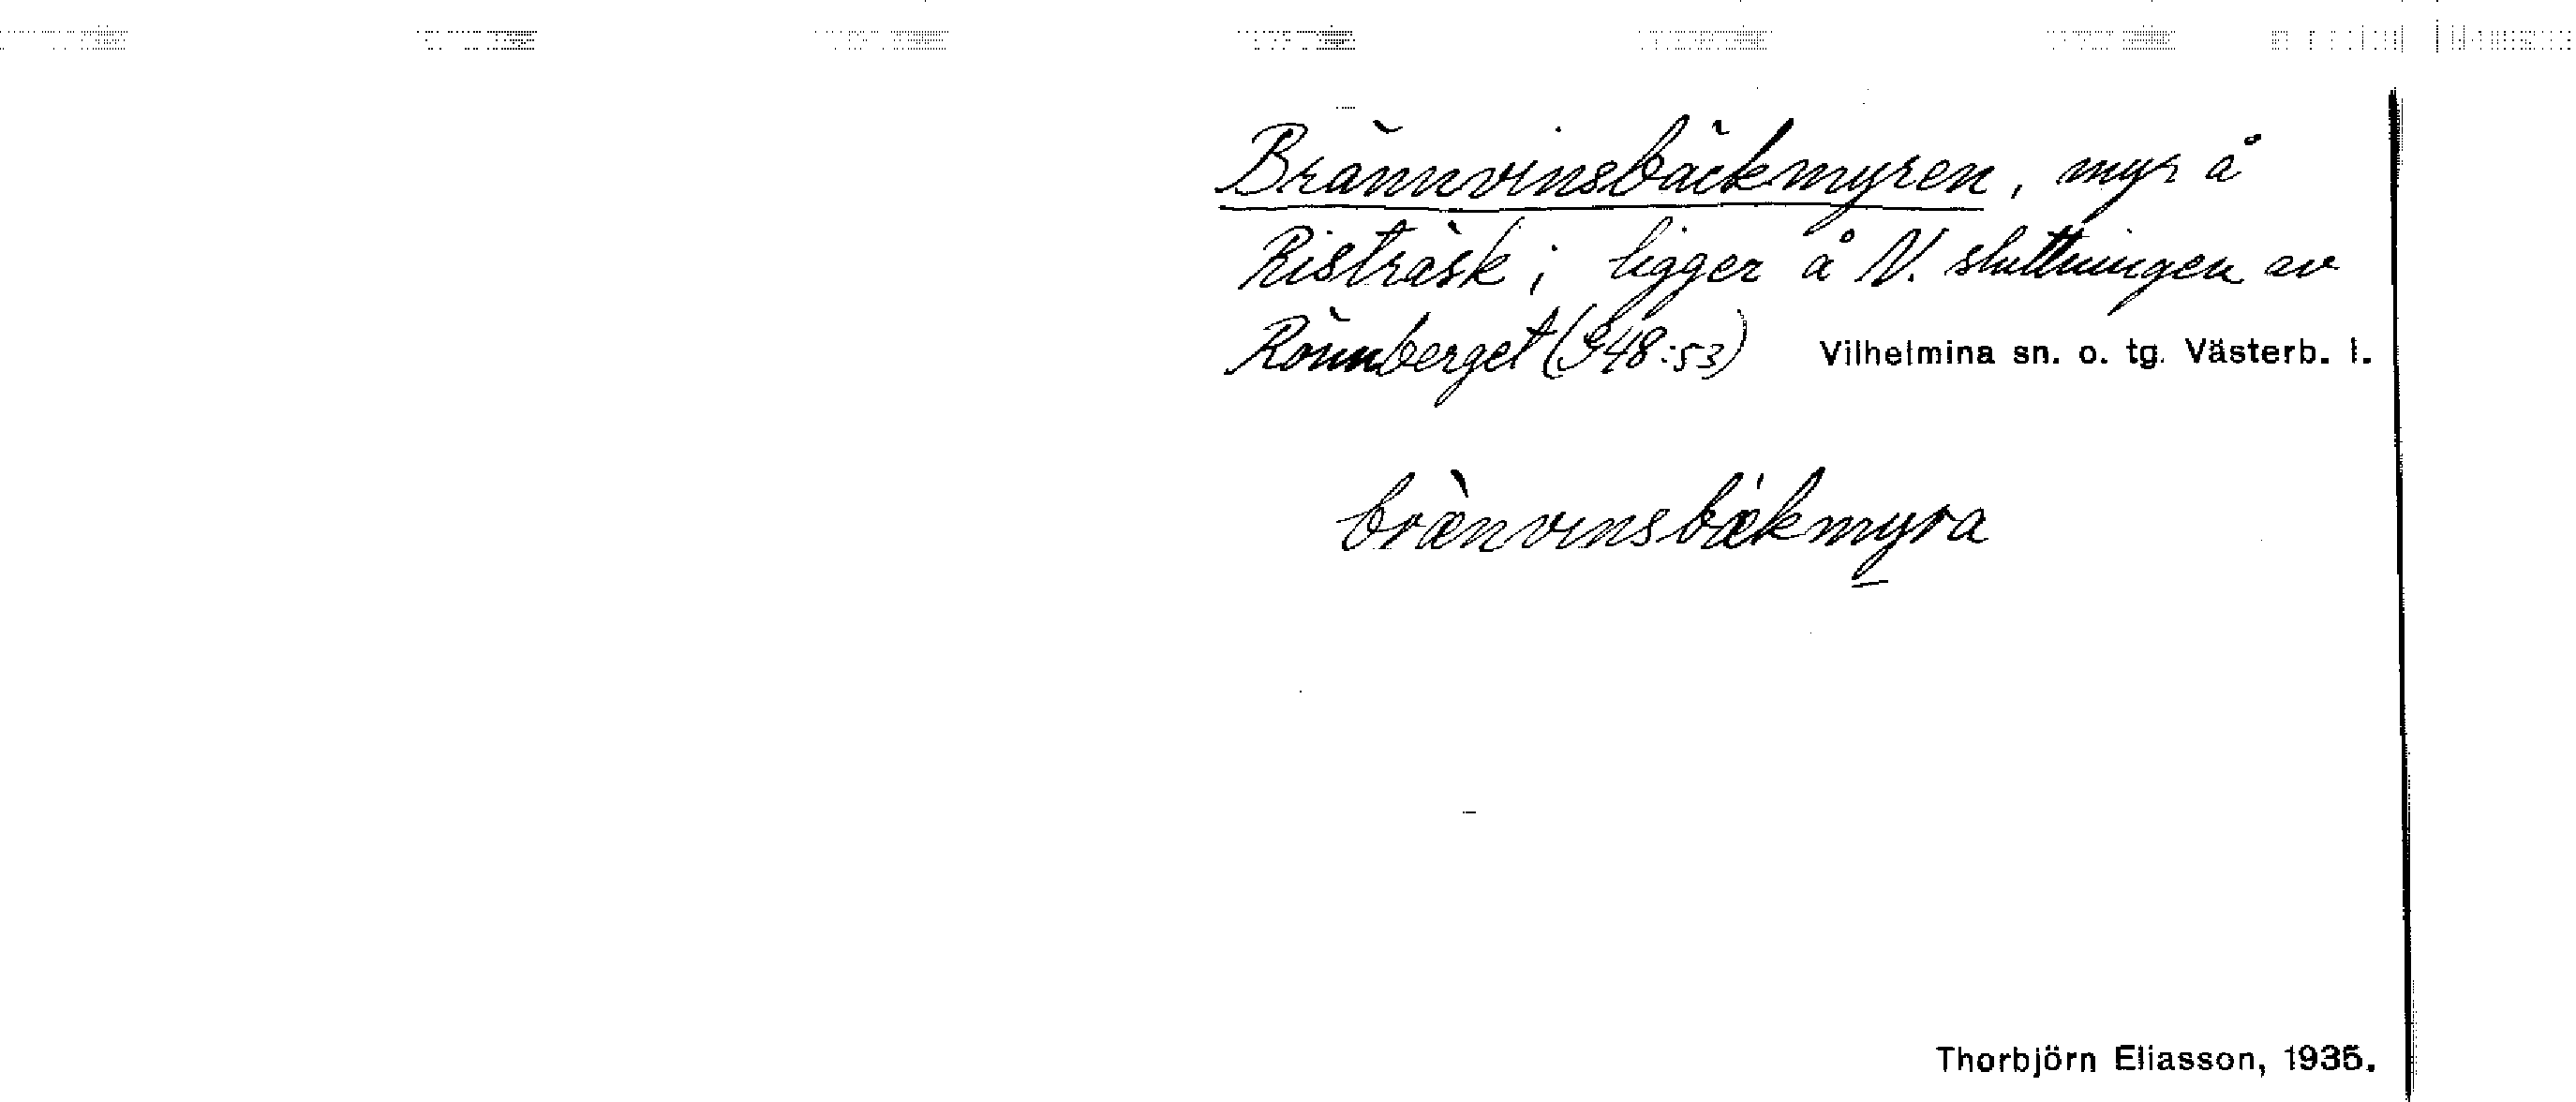 Brännvinsbäckmyren, myr å
Risträsk; ligger å N. sluttningen av
Rönnberget (G48:53) Vilhelmina sn. o. tg. Västerb. l.
bræ̀nvinsbækmyra
Thorbjörn Eliasson, 1935.